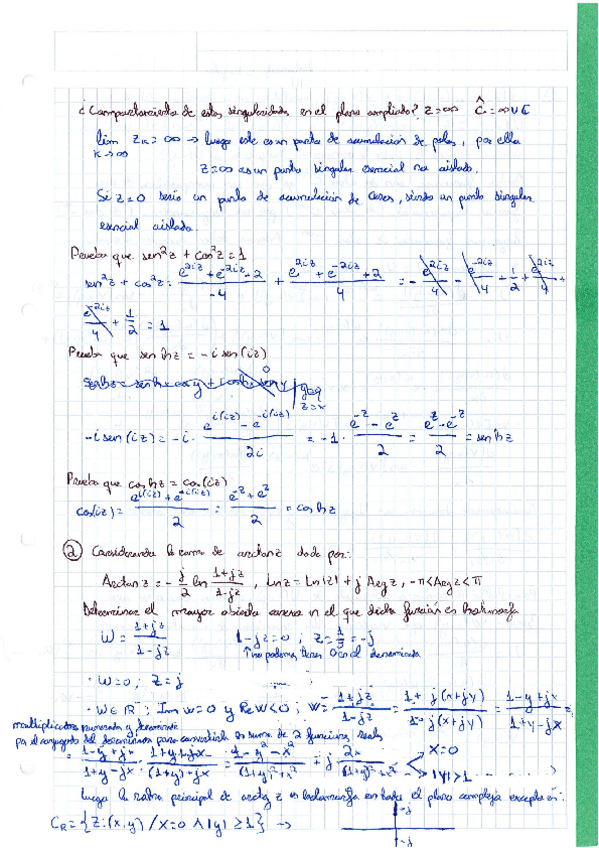 ¿Comportamiento de estas singularidades en el plano ampliado? z=∞ Ĉ=∞∪ℂ
lim z_k = ∞ → luego este es un punto de acumulación de polos, por ello
k→∞
z=∞ es un punto singular esencial no aislado.
Si z=0 sería un punto de acumulación de ceros, siendo un punto singular
esencial aislado.
Prueba que sen²z + cos²z = 1
sen²z + cos²z = (e^{2iz} + e^{-2iz} - 2)/(-4) + (e^{2iz} + e^{-2iz} + 2)/4 = - e^{2iz}/4 - e^{-2iz}/4 + 1/2 + e^{2iz}/4 +
e^{-2iz}/4 + 1/2 = 1
Prueba que senhz = -i sen(iz)
-i sen(iz) = -i · (e^{i(iz)} - e^{-i(iz)})/2i = -1 · (e^{-z} - e^{z})/2 = (e^{z} - e^{-z})/2 = senhz
Prueba que coshz = cos(iz)
cos(iz) = (e^{i(iz)} + e^{-i(iz)})/2 = (e^{-z} + e^{z})/2 = coshz
② Considerando la rama de arctan z dada por:
Arctan z = - j/2 ln (1+jz)/(1-jz) , Ln z = Ln|z| + j Arg z, -π<Arg z<π
Determinar el mayor abierto conexo en el que dicha función es holomorfa
W = (1+jz)/(1-jz) 1-jz=0 ; z = 1/j = -j
↑ no podemos tener 0 en el denominador
· W=0 ; z=j
· W∈ℝ⁻; Im w=0 y Re W<0 ; W = (1+jz)/(1-jz) = (1+j(x+jy))/(1-j(x+jy)) = (1-y+jx)/(1+y-jx) =
multiplicamos numerador y denominador
por el conjugado del denominador para convertirlo en suma de 2 funciones reales
= (1-y+jx)/(1+y-jx) · (1+y+jx)/((1+y)+jx) = (1-y²-x²)/((1+y)²+x²) + j 2x/((1+y)²+x²) < x=0
|y|>1
Luego la rama principal de arctg z es holomorfa en todo el plano complejo excepto en:
C_R = {z:(x,y) / x=0 ∧ |y| ≥ 1} →
j
-j